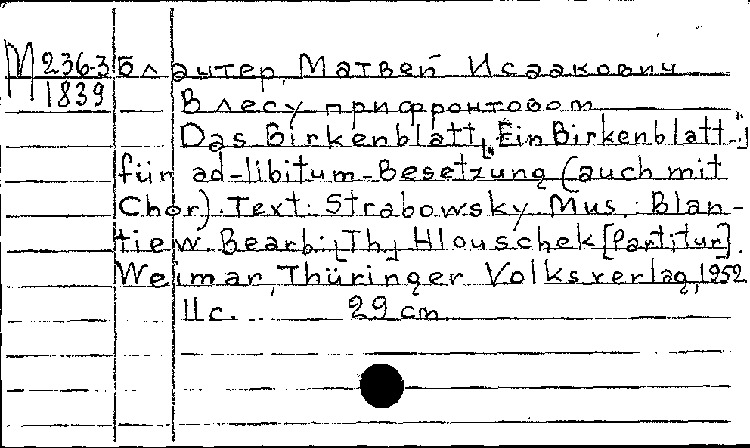 М 236-3 Блантер, Матвей Исаакович
1839 В лесу прифронтовом
Das Birkenblatt. ["Ein Birkenblatt.."]
für ad-libitum-Besetzung (auch mit
Chor). Text: Strabowsky. Mus.: Blan-
tiew. Bearb.: [Th.] Hlouschek [Partitur].
Weimar, Thüringer Volksverlag, 1952
11 с. 29 cm